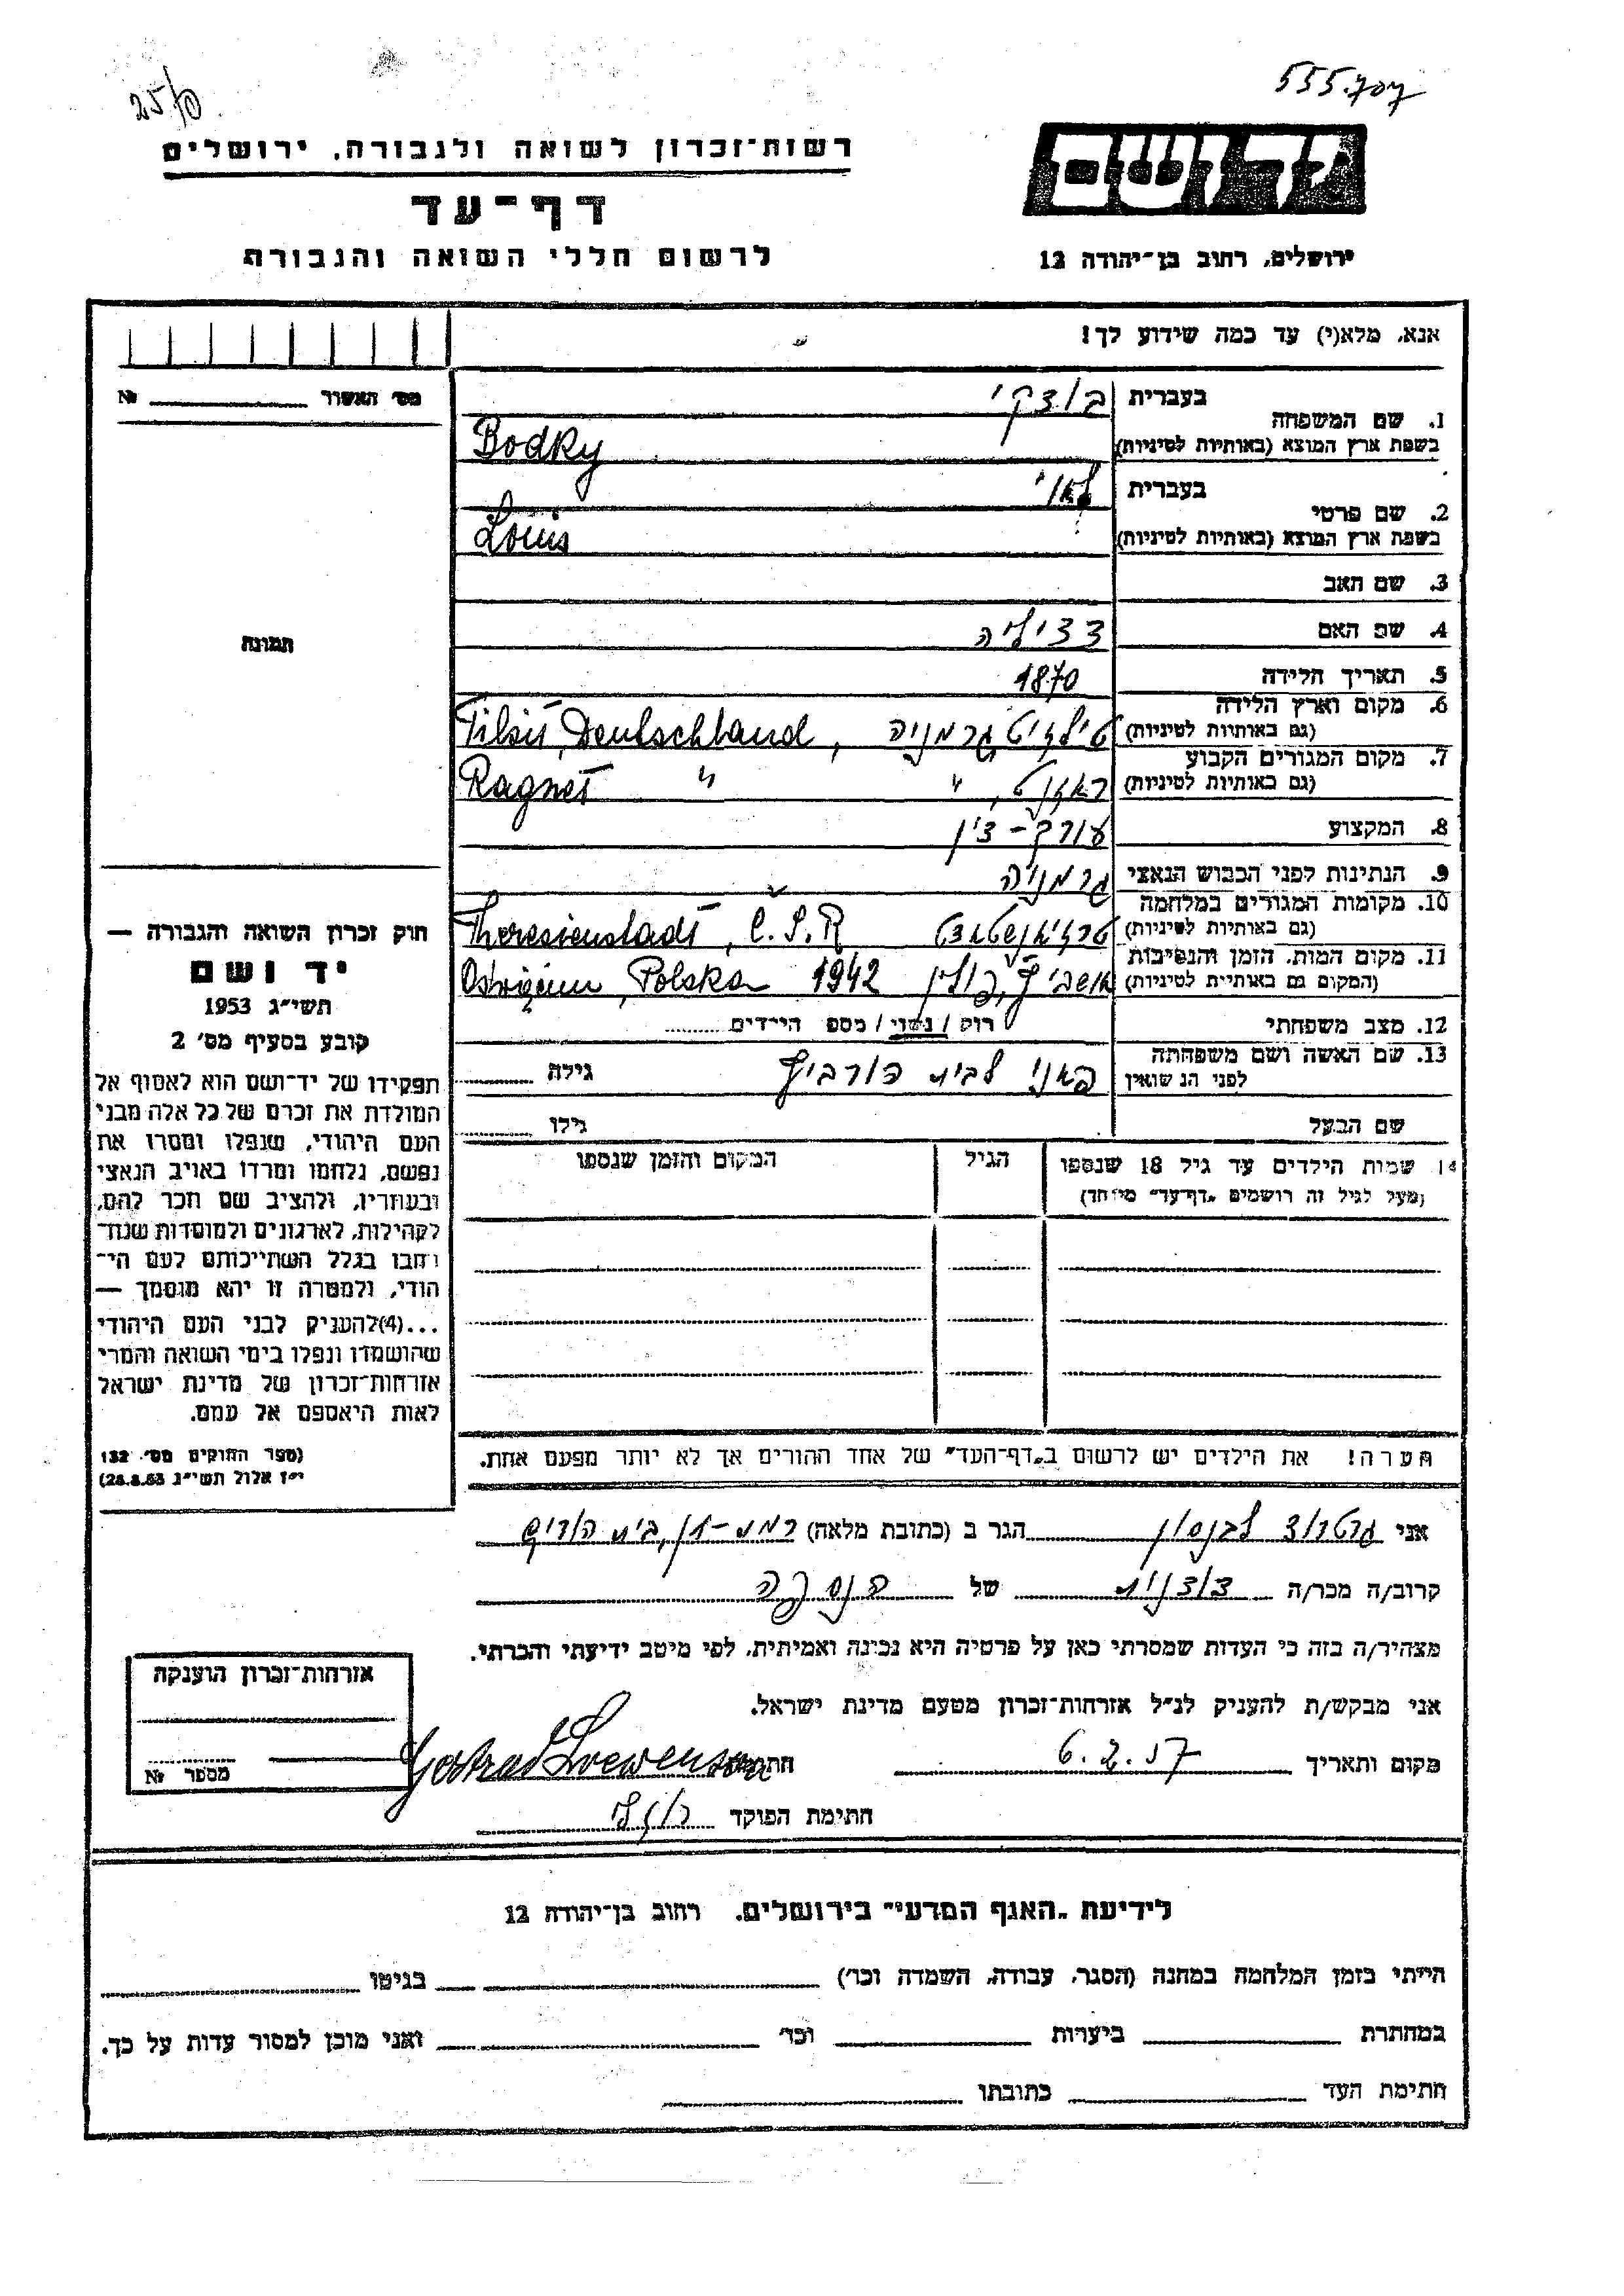 25/0
555.707
רשות־זכרון לשואה ולגבורה, ירושלים
דף־עד
לרשום חללי השואה והגבורה
ידושם
ירושלים, רחוב בן־יהודה 12
אנא, מלא(י) עד כמה שידוע לך!
מס׳ האשור № 
1. שם המשפחה
בעברית בודקי
בשפת ארץ המוצא (באותיות לטיניות) Bodky
2. שם פרטי
בעברית לואי
בשפת ארץ המוצא (באותיות לטיניות) Louis
3. שם האב
4. שם האם צציליה
5. תאריך הלידה 1870
6. מקום וארץ הלידה
(גם באותיות לטיניות) טילזיט גרמניה, Tilsit, Deutschland
7. מקום המגורים הקבוע
(גם באותיות לטיניות) ראגניט, " Ragnet "
8. המקצוע עורך-דין
9. הנתינות לפני הכבוש הנאצי גרמניה
10. מקומות המגורים במלחמה
(גם באותיות לטיניות) טרזיאנשטאדט Theresienstadt, Č.S.R
11. מקום המות, הזמן והנסיבות
(המקום גם באותיית לטיניות) אושביץ, פולין 1942 Oświęcim, Polska
12. מצב משפחתי רווק / נשוי / מספ הילדים
13. שם האשה ושם משפחתה
לפני הנשואין פאני לבית הורביץ גילה
שם הבעל גילו
14 שמות הילדים עד גיל 18 שנספו
(מעל לגיל זה רושמים „דף־עד" מיוחד)
הגיל
המקום והזמן שנספו
הערה! את הילדים יש לרשום ב„דף־העד" של אחד ההורים אך לא יותר מפעם אחת.
תמונה
חוק זכרון השואה והגבורה —
יד ושם
תשי״ג 1953
קובע בסעיף מס׳ 2
תפקידו של יד־ושם הוא לאסוף אל
המולדת את זכרם של כל אלה מבני
העם היהודי, שנפלו ומסרו את
נפשם, נלחמו ומרדו באויב הנאצי
ובעוזריו, ולהציב שם וזכר להם,
לקהילות, לארגונים ולמוסדות שנח־
רבו בגלל השתייכותם לעם הי־
הודי, ולמטרה זו יהא מוסמך —
...(4)להעניק לבני העם היהודי
שהושמדו ונפלו בימי השואה והמרי
אזרחות־זכרון של מדינת ישראל
לאות היאספם אל עמם.
(ספר החוקים מס׳ 132
י״ז אלול תשי״ג 28.8.53)
אני גרטרוד לבנסון הגר ב (כתובת מלאה) רמת-חן, בית הורים
קרוב/ה מכר/ה בודנית של הנספה
מצהיר/ה בזה כי העדות שמסרתי כאן על פרטיה היא נכונה ואמיתית, לפי מיטב ידיעתי והכרתי.
אני מבקש/ת להעניק לנ״ל אזרחות־זכרון מטעם מדינת ישראל.
מקום ותאריך 6.2.57 חתימה Gertrud Loewenson
חתימת הפוקד
אזרחות־זכרון הוענקה
מספר №
לידיעת „האגף המדעי" בירושלים. רחוב בן־יהודה 12
הייתי בזמן המלחמה במחנה (הסגר, עבודה, השמדה וכו׳) בגיטו
במחתרת ביערות וכו׳ ואני מוכן למסור עדות על כך.
חתימת העד כתובתו